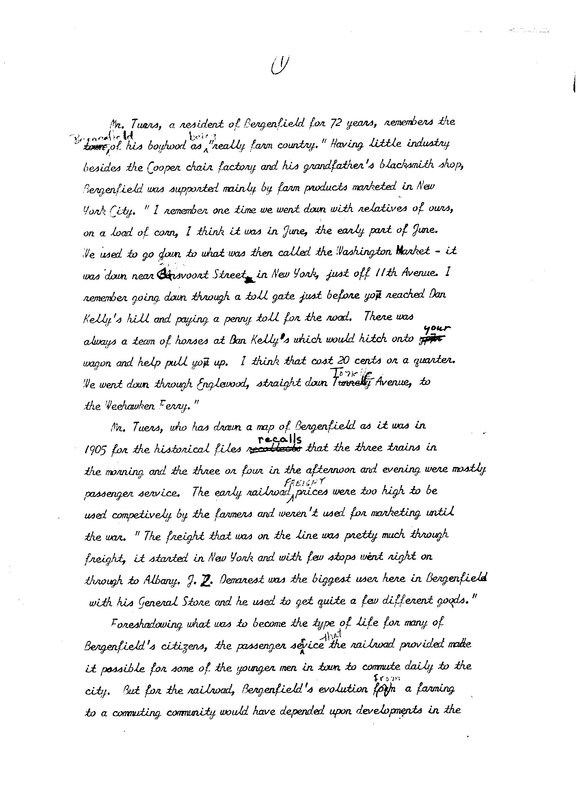 (1)
Mr. Tuers, a resident of Bergenfield for 72 years, remembers the
Bergenfield being
of his boyhood as "really farm country." Having little industry
besides the Cooper chair factory and his grandfather's blacksmith shop,
Bergenfield was supported mainly by farm products marketed in New
York City. "I remember one time we went down with relatives of ours,
on a load of corn, I think it was in June, the early part of June.
We used to go down to what was then called the Washington Market - it
was down near Gansvoort Street, in New York, just off 11th Avenue. I
remember going down through a toll gate just before you reached Dan
Kelly's hill and paying a penny toll for the road. There was
your
always a team of horses at Dan Kelly's which would hitch onto
wagon and help pull you up. I think that cost 20 cents or a quarter.
We went down through Englewood, straight down Avenue, to
the Weehawken Ferry."
Mr. Tuers, who has drawn a map of Bergenfield as it was in
recalls
1905 for the historical files recollects that the three trains in
the morning and the three or four in the afternoon and evening were mostly
FREIGHT
passenger service. The early railroad prices were too high to be
used competively by the farmers and weren't used for marketing until
the war. "The freight that was on the line was pretty much through
freight, it started in New York and with few stops went right on
through to Albany. J. Z. Demarest was the biggest user here in Bergenfield
with his General Store and he used to get quite a few different goods."
Foreshadowing what was to become the type of life for many of
that
Bergenfield's citizens, the passenger sevice the railroad provided made
it possible for some of the younger men in town to commute daily to the
from
city. But for the railroad, Bergenfield's evolution form a farming
to a commuting community would have depended upon developments in the